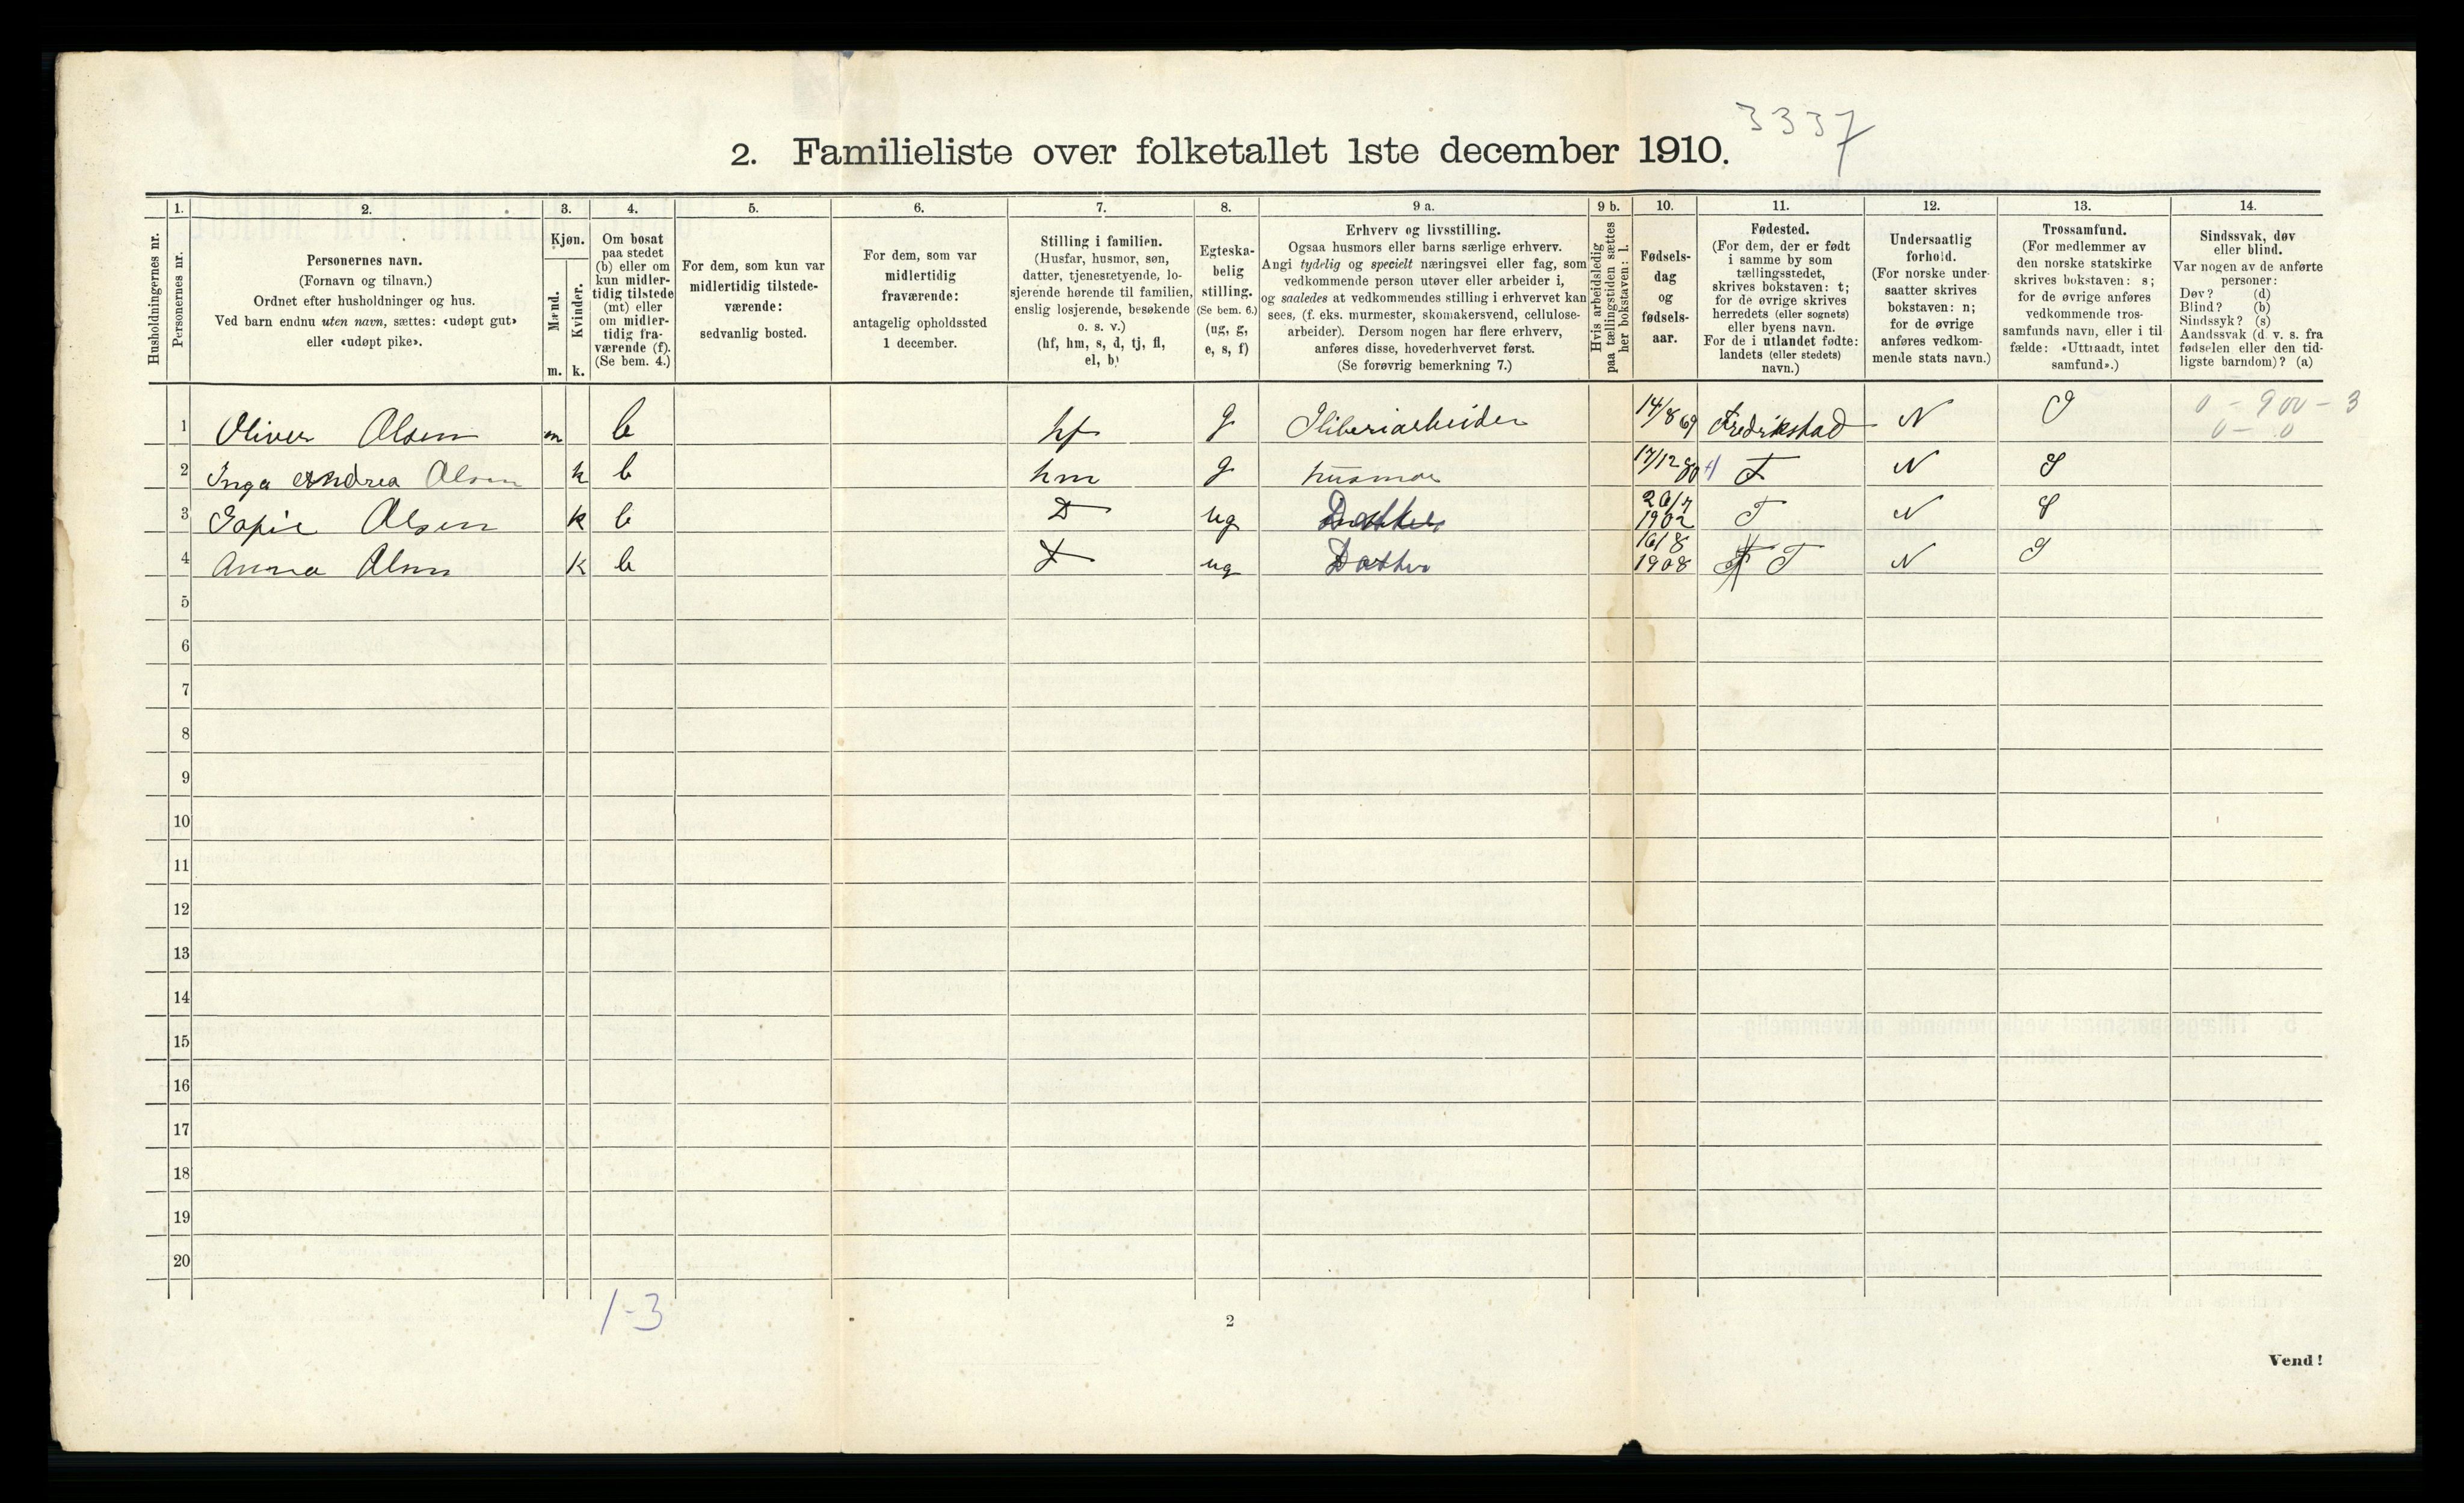 3337
2. Familieliste over folketallet 1ste december 1910.
Husholdningernes nr.
1.
Personernes nr.
2.
Personernes navn.
(Fornavn og tilnavn.)
Ordnet efter husholdninger og hus.
Ved barn endnu uten navn, sættes: «udøpt gut»
eller «udøpt pike».
3.
Kjøn.
Mænd.
Kvinder.
m. k.
4.
Om bosat
paa stedet
(b) eller om
kun midler-
tidig tilstede
(mt) eller
om midler-
tidig fra-
værende (f).
(Se bem. 4.)
5.
For dem, som kun var
midlertidig tilstede-
værende:
sedvanlig bosted.
6.
For dem, som var
midlertidig
fraværende:
antagelig opholdssted
1 december.
7.
Stilling i familien.
(Husfar, husmor, søn,
datter, tjenestetyende, lo-
sjerende hørende til familien,
enslig losjerende, besøkende
o. s. v.)
(hf, hm, s, d, tj, fl,
el, b)
8.
Egteska-
belig
stilling.
(Se bem. 6.)
(ug, g,
e, s, f)
9 a.
Erhverv og livsstilling.
Ogsaa husmors eller barns særlige erhverv.
Angi tydelig og specielt næringsvei eller fag, som
vedkommende person utøver eller arbeider i,
og saaledes at vedkommendes stilling i erhvervet kan
sees, (f. eks. murmester, skomakersvend, cellulose-
arbeider). Dersom nogen har flere erhverv,
anføres disse, hovederhvervet først.
(Se forøvrig bemerkning 7.)
9 b.
Hvis arbeidsledig
paa tællingstiden sættes
her bokstaven: l.
10.
Fødsels-
dag
og
fødsels-
aar.
11.
Fødested.
(For dem, der er født
i samme by som
tællingsstedet,
skrives bokstaven: t;
for de øvrige skrives
herredets (eller sognets)
eller byens navn.
For de i utlandet fødte:
landets (eller stedets)
navn.)
12.
Undersaatlig
forhold.
(For norske under-
saatter skrives
bokstaven: n;
for de øvrige
anføres vedkom-
mende stats navn.)
13.
Trossamfund.
(For medlemmer av
den norske statskirke
skrives bokstaven: s;
for de øvrige anføres
vedkommende tros-
samfunds navn, eller i til-
fælde: «Uttraadt, intet
samfund».)
14.
Sindssvak, døv
eller blind.
Var nogen av de anførte
personer:
Døv? (d)
Blind? (b)
Sindssyk? (s)
Aandssvak (d. v. s. fra
fødselen eller den tid-
ligste barndom)? (a)
1 Oliver Olsen m b hf g Sliberiarbeider 14/8 69 Fredrikstad N S 0 - 900 - 3
0 - 0
2 Inga Andrea Olsen k b hm g husmor 17/12 80 T N S
3 Sofie Olsen k b D ug Datter 20/7 1902 T N S
4 Anna Olsen k b D ug Datter 16/8 1908 T N S
5
6
7
8
9
10
11
12
13
14
15
16
17
18
19
20
1-3
2
Vend!